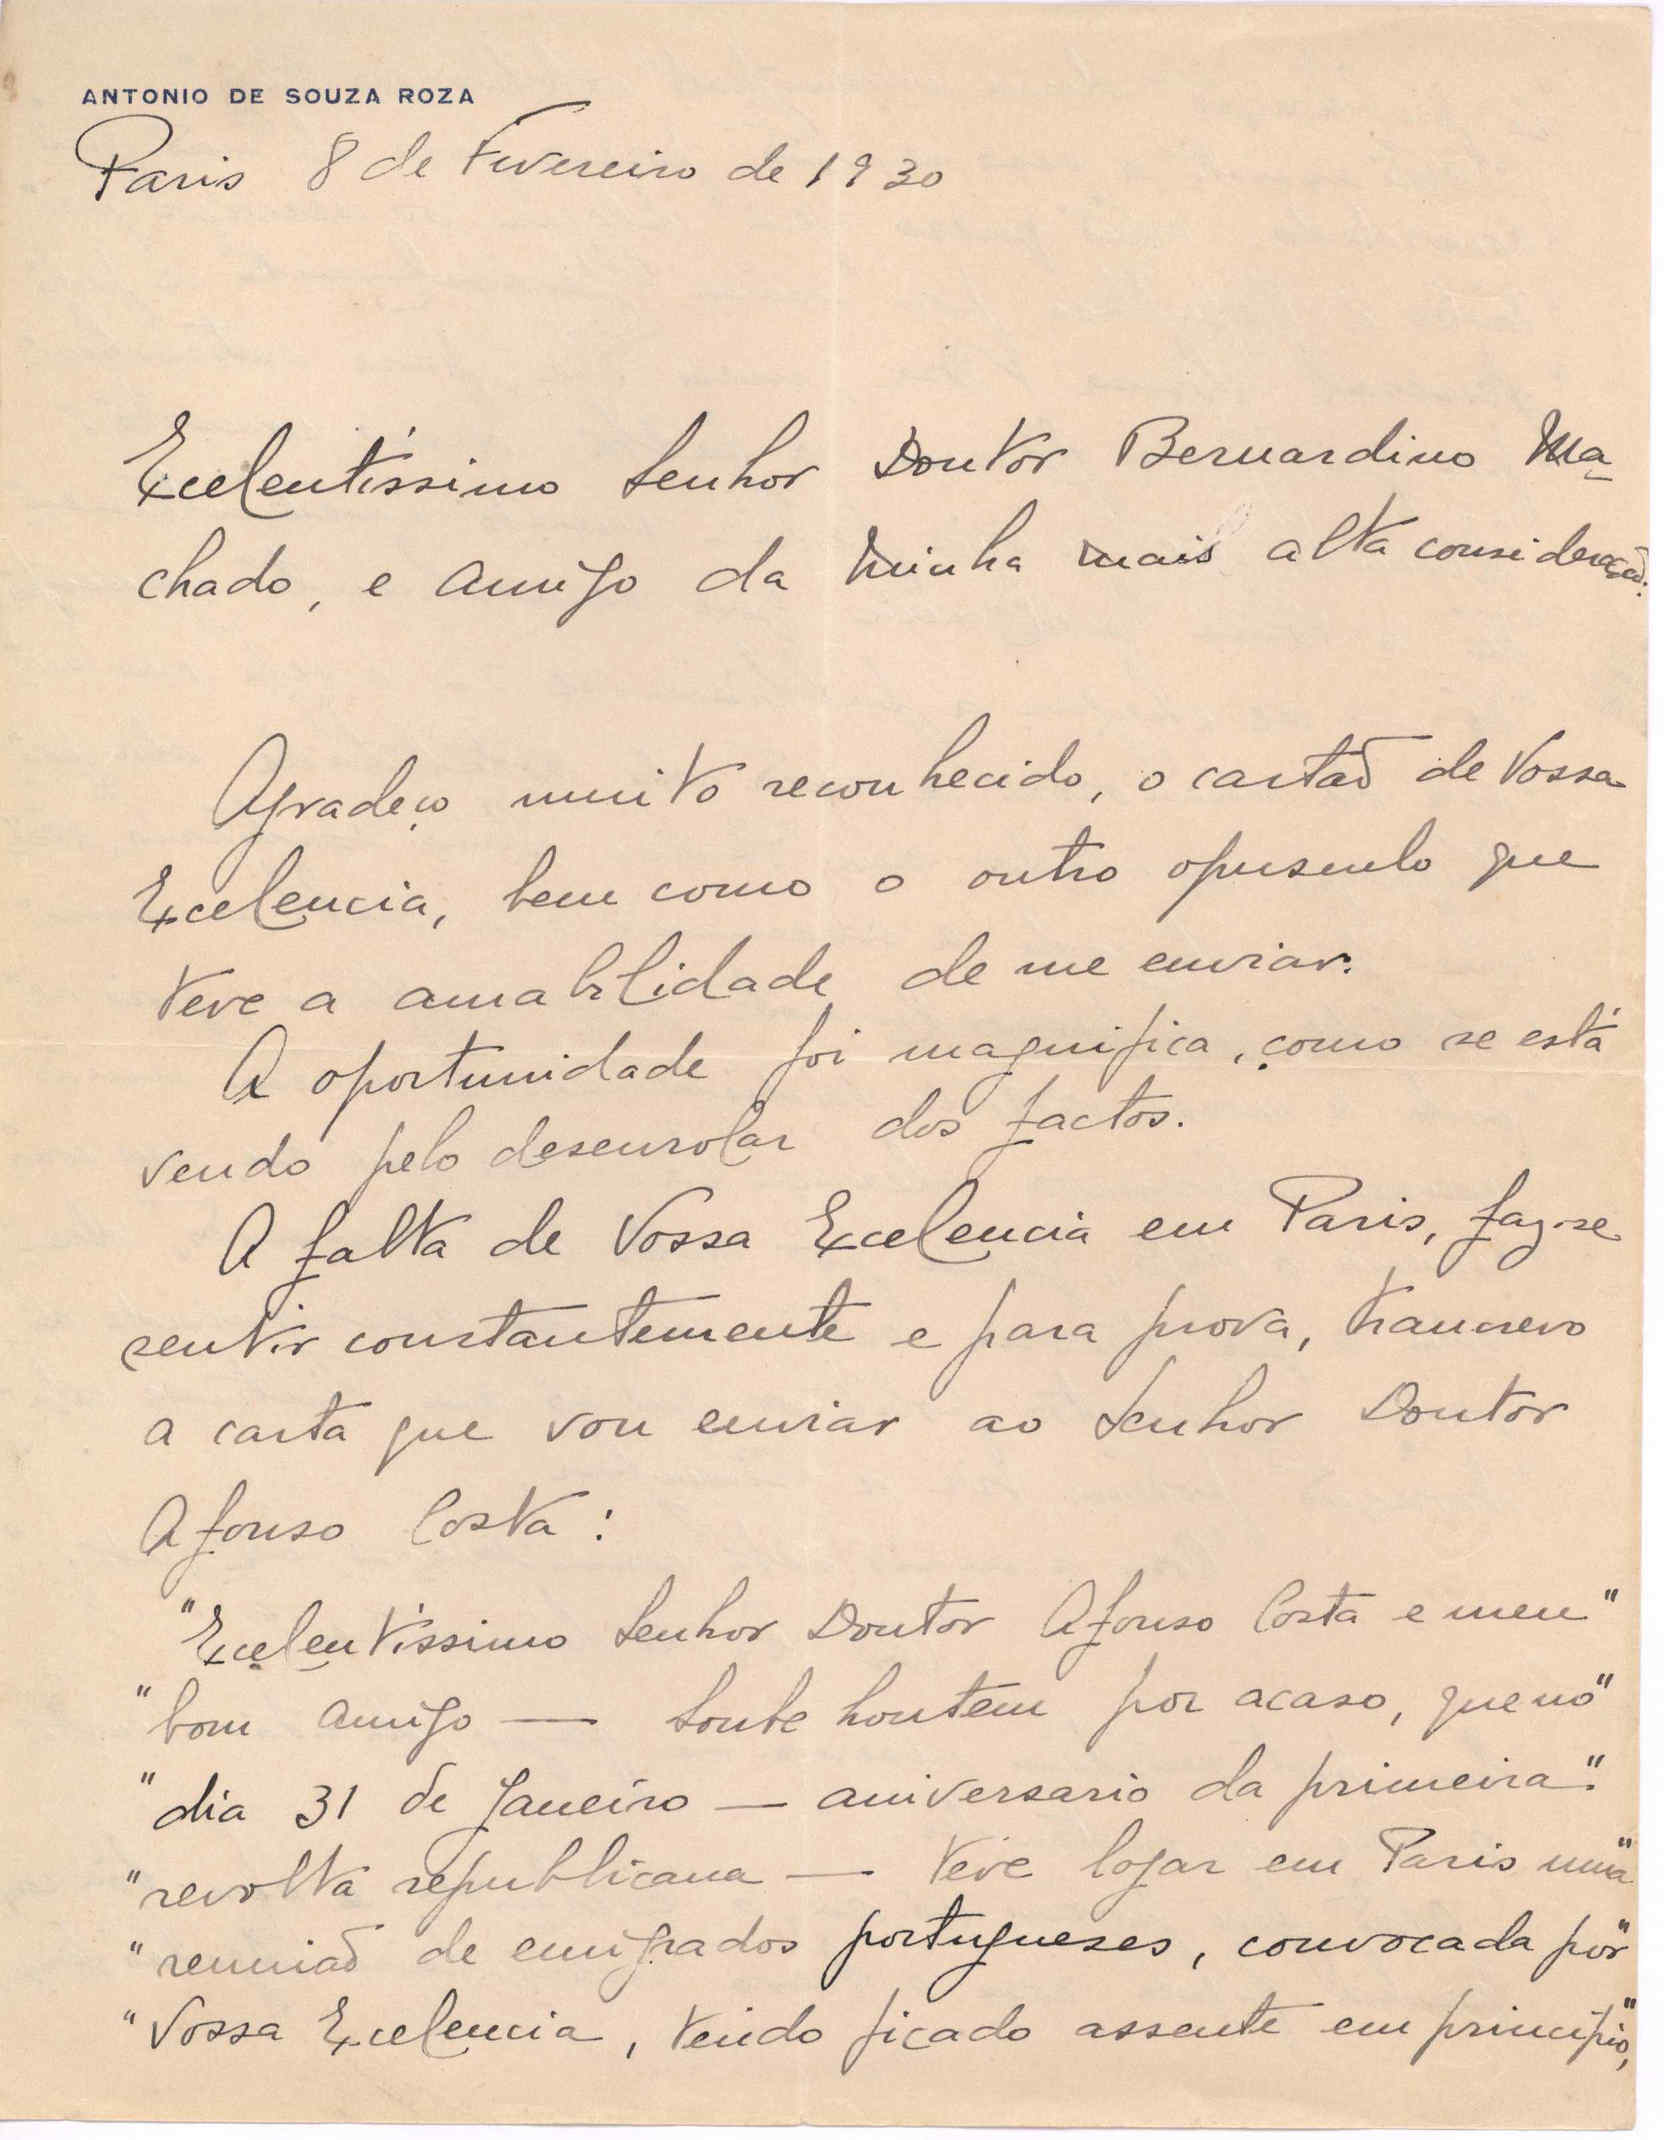 ANTONIO DE SOUZA ROZA
Paris 8 de Fevereiro de 1930
Excelentíssimo Senhor Doutor Bernardino Ma-
chado, e amigo da minha mais alta consideração:
Agradeço muito reconhecido, o cartão de Vossa
Excelencia, bem como o outro opusculo que
teve a amabilidade de me enviar.
A oportunidade foi magnifica, como se está
vendo pelo desenrolar dos factos.
A falta de Vossa Excelencia em Paris, faz-se
sentir constantemente e para prova, transcrevo
a carta que vou enviar ao Senhor Doutor
Afonso Costa:
"Excelentíssimo Senhor Doutor Afonso Costa e meu"
"bom amigo — Soube hontem por acaso, que no"
"dia 31 de Janeiro — aniversario da primeira"
"revolta republicana — teve logar em Paris uma"
"reunião de emigrados portugueses, convocada por"
"Vossa Excelencia, tendo ficado assente em principio,"